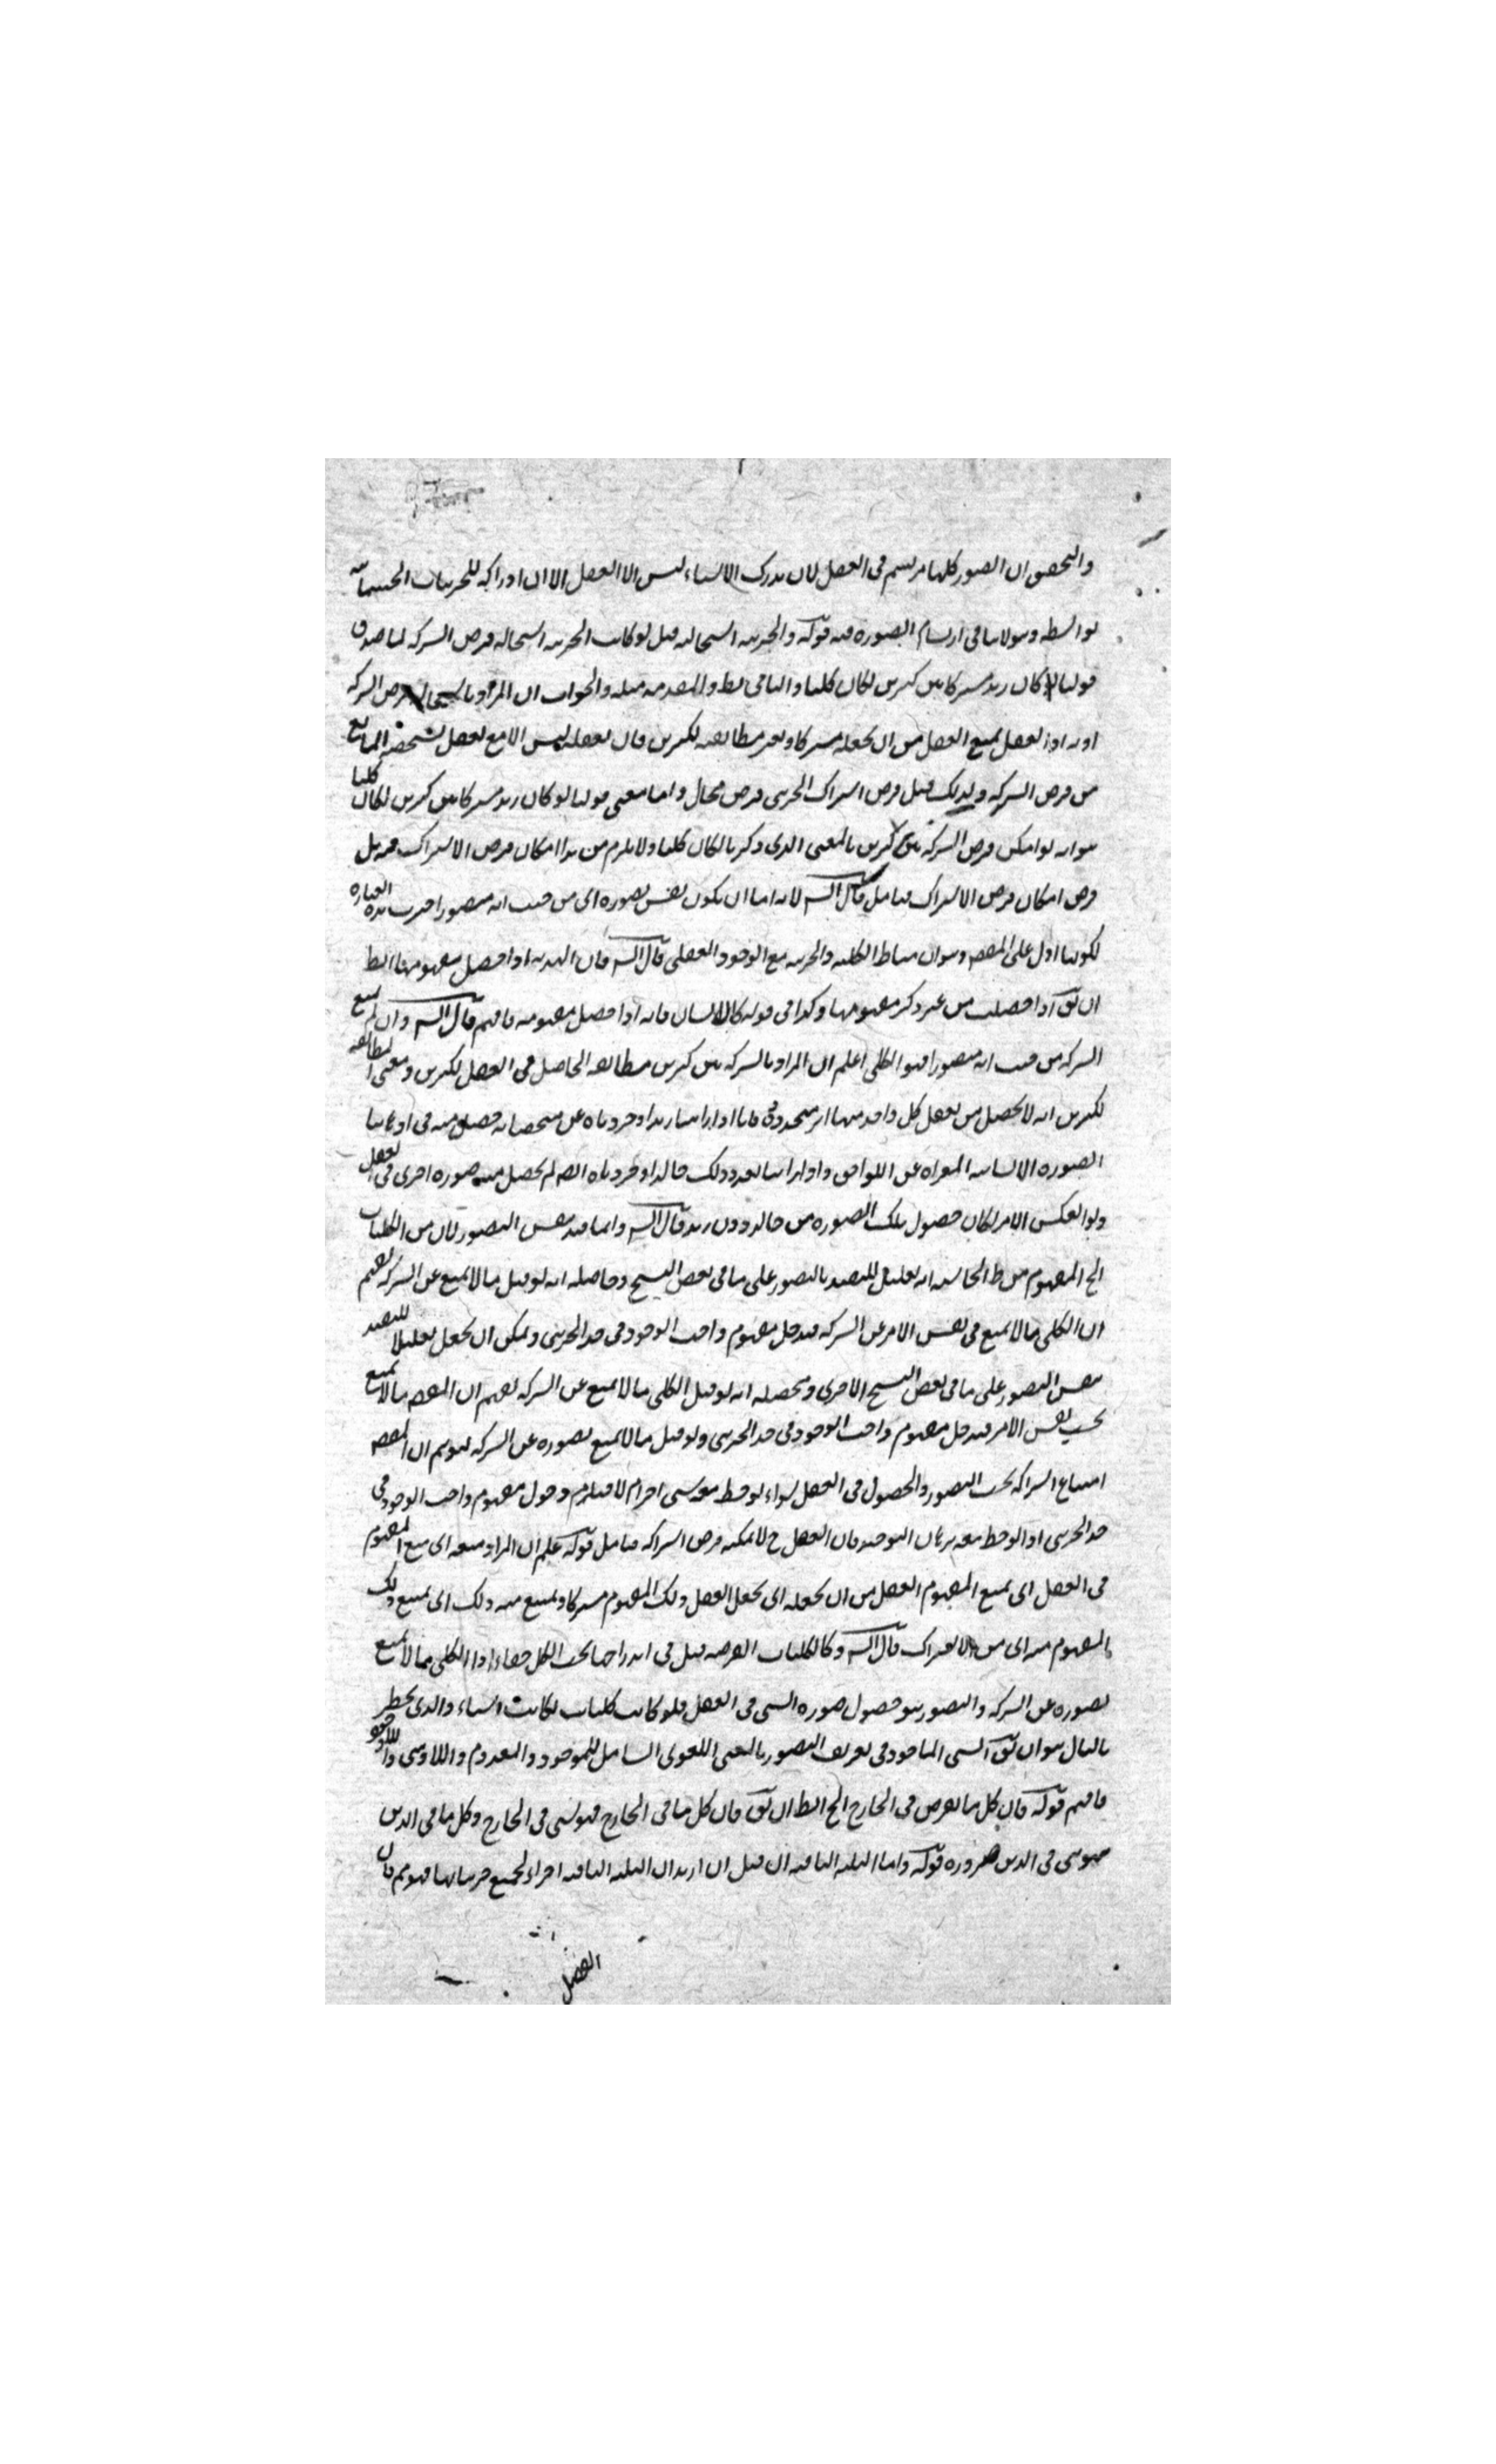 والتحقيق ان الصور كلها مرتسم فى العقل لان مدرك الاشياء ليس الا العقل الا ان ادراكه للجزئيات الجسمانية
بواسطة وهو لا ينافى ارتسام الصورة فيه قوله والجزئية استحالته قيل لو كانت الجزئية استحالة فرض الشركة لما صدق
قولنا لو كان زيد مشتركا بين كثيرين لكان كليا والتالى بط والمقدم مثله والجواب ان المراد باستحالة فرض الشركة
انه اذا تعقل يمنع العقل من ان يجعله مشتركا ويعتبر مطابقته لكثيرين فان تعقله ليس الا مع تعقل تشخصه المانع
من فرض الشركة ولذلك قيل فرض اشتراك الجزئى فرض محال واما معنى قولنا لو كان زيد مشتركا بين كثيرين لكان كليا
هو انه لو امكن فرض الشركة بين كثيرين بالمعنى الذى ذكر نا لكان كليا ولا يلزم من هذا امكان فرض الاشتراك فيه بل
فرض امكان فرض الاشتراك فتامل قال الش لانه اما ان يكون نفس تصوره اى من حيث انه متصور اختيرت هذه العبارة
لكونها ادل على المقصه وهو ان مناط الكلية والجزئية مع الوجود العقلى قال الش فان الهذية اذا حصل مفهومها الظ
ان يق اذا حصلت من غير ذكر مفهومها وكذا فى قوله كالانسان فانه اذا حصل مفهومه فافهم قال الش وان لم يمنع
الشركة من حيث انه متصور فهو الكلى اعلم ان المراد بالشركة بين كثيرين مطابقة الحاصل فى العقل لكثيرين ومعنى المطابقة
لكثيرين انه لا يحصل من تعقل كل واحد منها اثر متجدد فانا اذا راينا زيدا وجردناه عن مشخصاته حصل منه فى اذهاننا
الصورة الانسانية المعراة عن اللواحق واذا راينا بعد ذلك خالدا وجردناه ايضه لم يحصل منه صورة اخرى فى العقل
ولو انعكس الامر لكان حصول تلك الصورة من خالد دون زيد قال الش وانما قيد بنفس التصور لان من الكليات
الخ المفهوم من ط الحاشيه انه تعليل للتقييد بالتصور على ما فى بعض النسخ وحاصله انه لو قيل ما لا يمنع عن الشركة يفهم
ان الكلى ما لا يمنع فى نفس الامر عن الشركة فيدخل مفهوم واجب الوجود فى حد الجزئى ويمكن ان يجعل تعليلا للتقييد
بنفس التصور على ما فى بعض النسخ الاخرى ومحصله انه لو قيل الكلى ما لا يمنع عن الشركة يفهم ان المقصه ما لا يمنع
بحسب نفس الامر فيدخل مفهوم واجب الوجود فى حد الجزئى ولو قيل ما لا يمنع تصوره عن الشركة ليوهم ان المقصه
امتناع اشتراكه بحسب التصور والحصول فى العقل سواء لوحظ معه شى اخر ام لا فيلزم دخول مفهوم واجب الوجود فى
حد الجزئى اذا لوحظ معه برهان التوحيد فان العقل ح لا يمكنه فرض اشتراكه فتامل قوله علم ان المراد منعه اى منع المفهوم
فى العقل اى يمنع المفهوم العقل من ان يجعله اى يجعل العقل ذلك المفهوم مشتركا ويمنع منه ذلك اى يمنع ذلك
المفهوم منه اى من الاشتراك قال الش وكالكليات الفرضيه قيل فى اندراجها تحت الكل خفاء اذا الكلى ما لا يمنع
تصوره عن الشركة والتصور هو حصول صورة الشى فى العقل فلو كانت كليات لكانت اشياء والذى يخطر
بالبال هو ان يق الشى الماخوذ فى تعريف التصور بالمعنى اللغوى الشامل للموجود والمعدوم واللاشى واللاوجود
فافهم قوله فان كل ما يفرض فى الخارج الخ الظ ان يق فان كل ما فى الخارج فهو شى فى الخارج وكل ما فى الذهن
فهو شى فى الذهن ضرورة قوله واما الثلثه الباقيه ان قيل ان اريد ان الثلثه الباقيه اجزاء لجميع جزئياتها فهو مم فان
الفصل